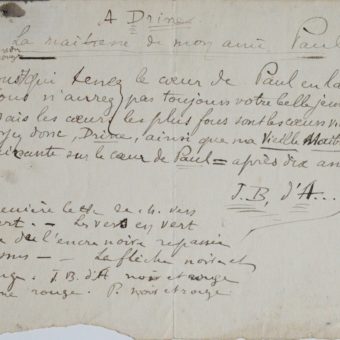 A Drine
La maitresse de mon ami Paul
qui tenez le cœur de Paul en la
n'aurez pas toujours votre belle jeu
les cœurs les plus fous sont les cœurs vi
donc, Drine, ainsi que ma Vieille Mait
sur le cœur de Paul = après dix an
J.B. d'A...
vers
ert. - Le vers en vert
de l'encre noire repassée
- La flèche noire et
uge. J.B. d'A noir et rouge
ne rouge. P. noir et rouge